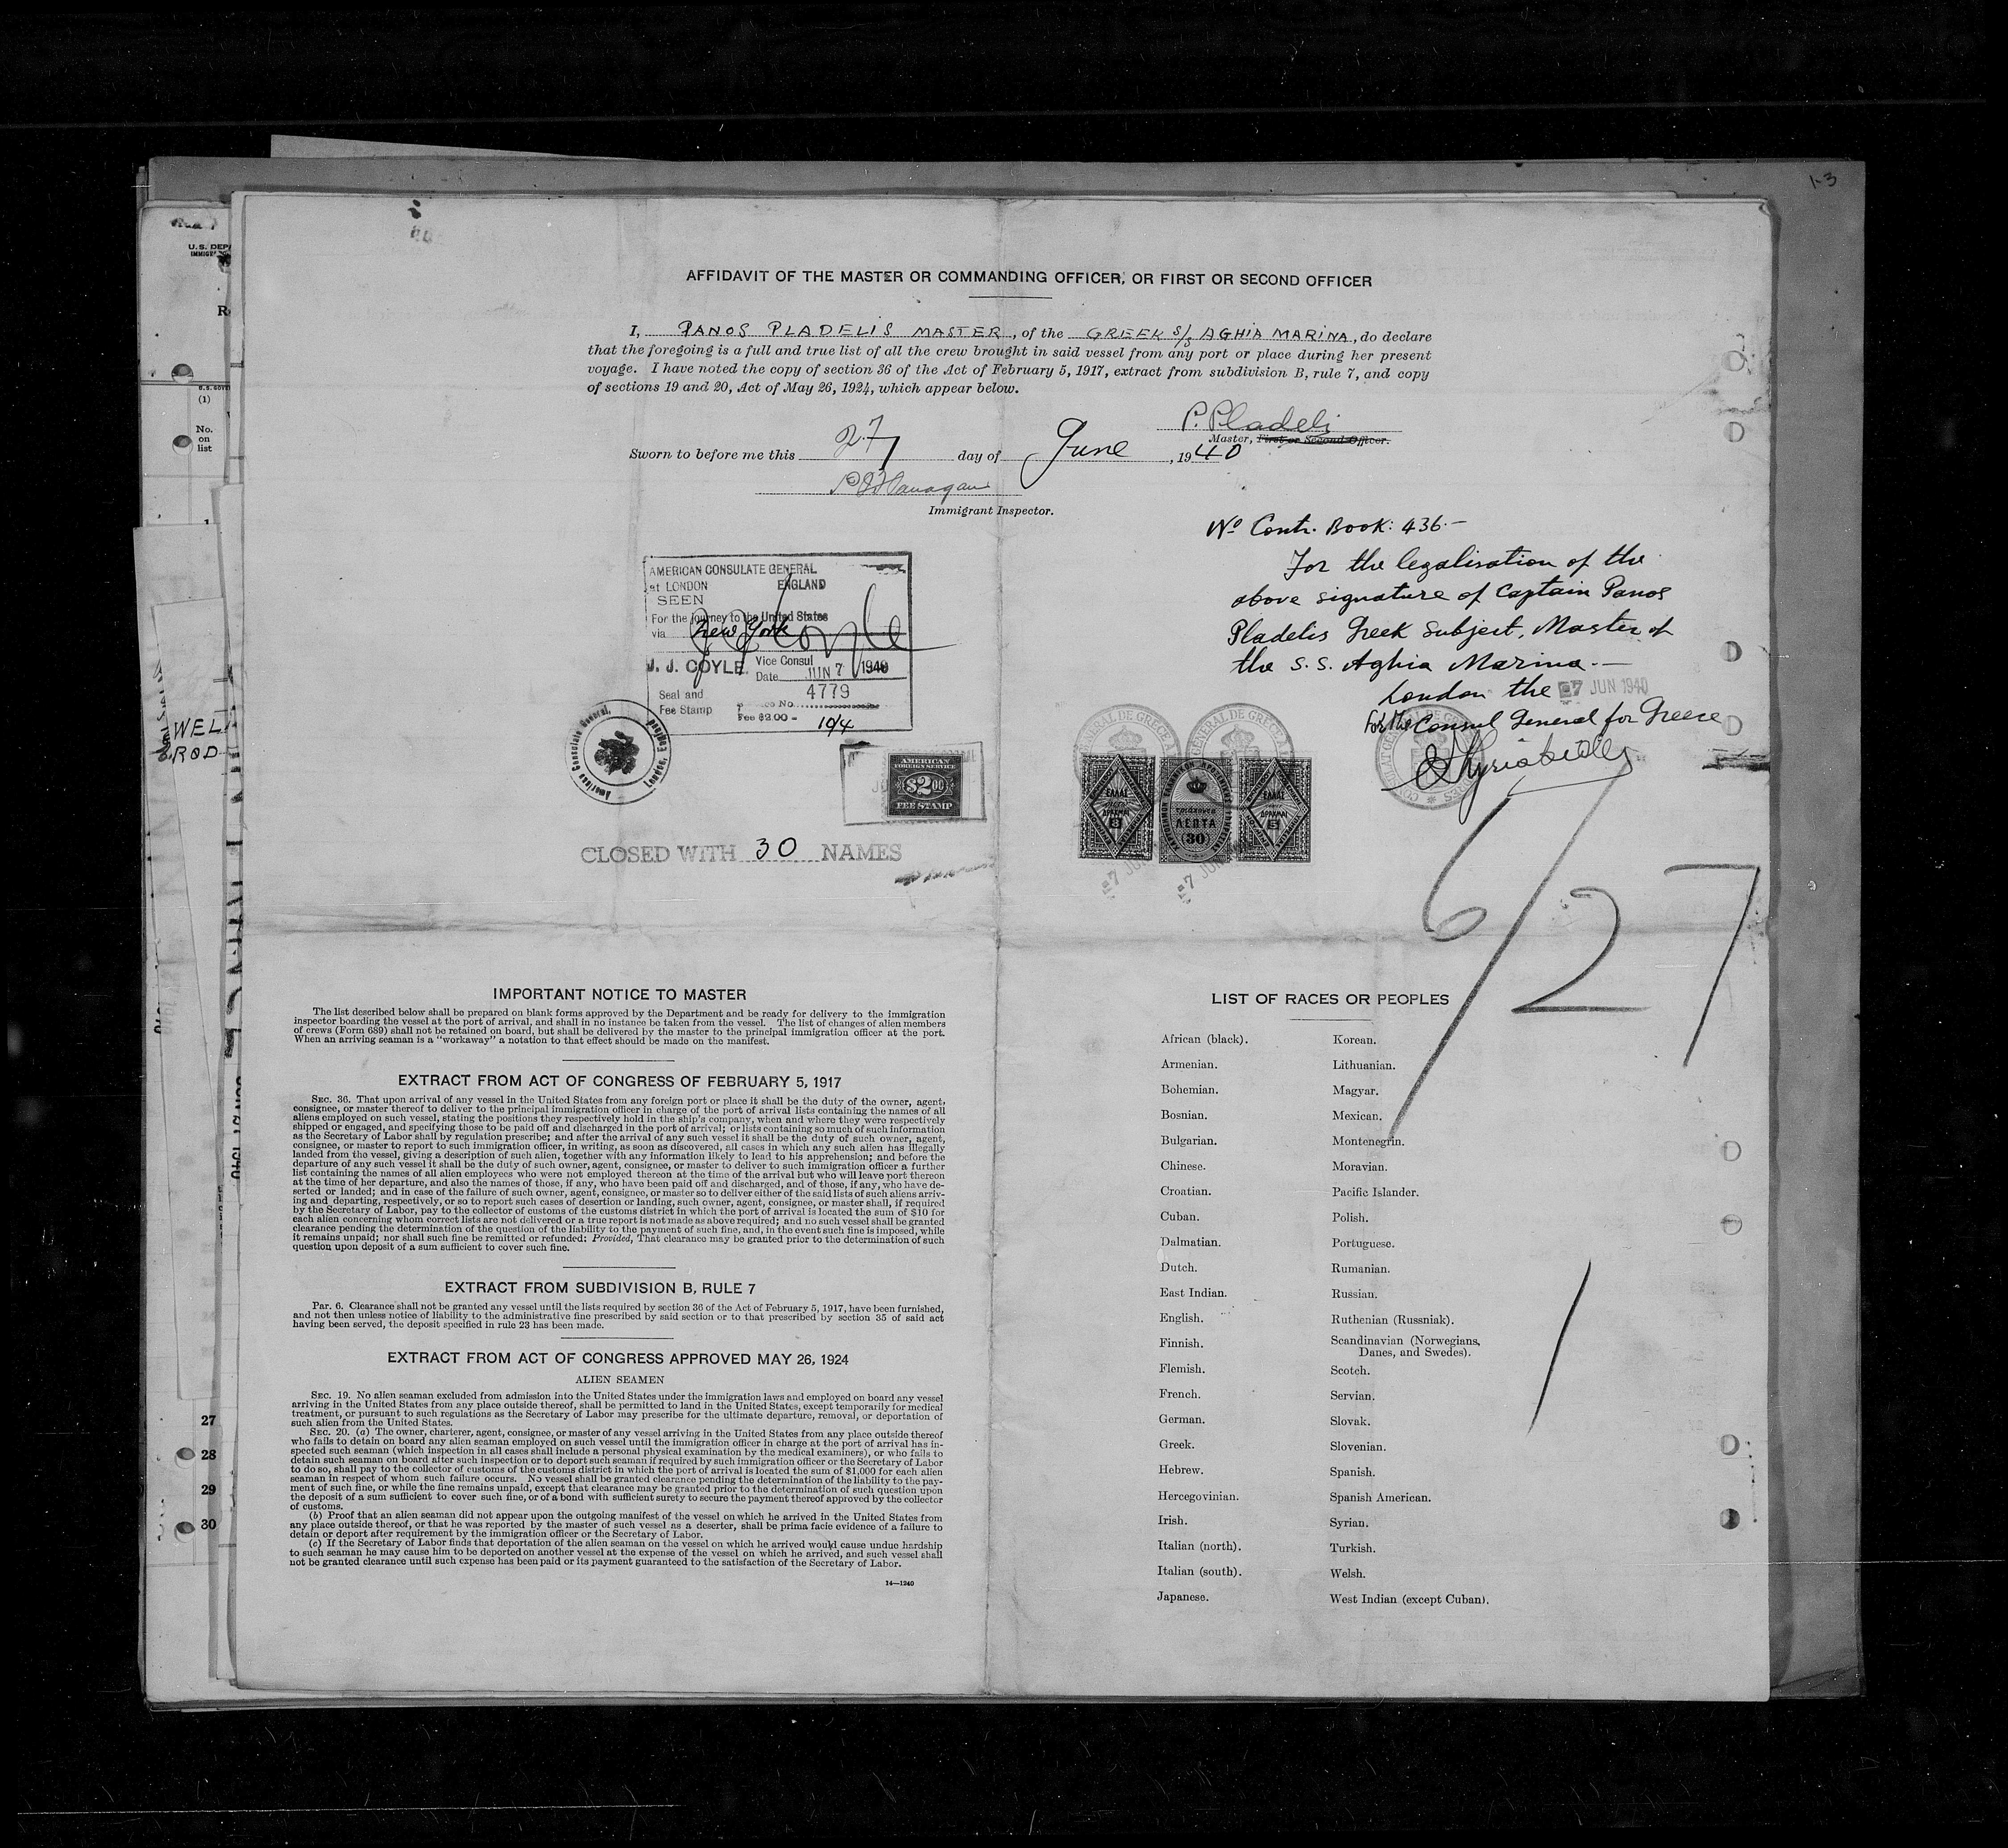 1-3
U.S. DEP
R
(1)
No.
on
list
WEL
ROD
27
28
29
30
AFFIDAVIT OF THE MASTER OR COMMANDING OFFICER, OR FIRST OR SECOND OFFICER
I, PANOS PLADELIS MASTER, of the GREEK S/S AGHIA MARINA, do declare
that the foregoing is a full and true list of all the crew brought in said vessel from any port or place during her present
voyage. I have noted the copy of section 36 of the Act of February 5, 1917, extract from subdivision B, rule 7, and copy
of sections 19 and 20, Act of May 26, 1924, which appear below.
P. Pladelis
Master, First or Second Officer.
Sworn to before me this 27 day of June, 1940
Immigrant Inspector.
Nº Contr. Book: 436.-
For the legalisation of the
above signature of Captain Panos
Pladelis Greek Subject, Master of
the S.S. Aghia Marina.-
London the 27 JUN 1940
For the Consul General for Greece
AMERICAN CONSULATE GENERAL
at LONDON ENGLAND
SEEN
For the journey to the United States
via New York
J. J. COYLE Vice Consul
Date JUN 7 1940
4779
Seal and
Fee Stamp No.
Fee $2.00 = 10/4
American Consulate General, London, England
AMERICAN
FOREIGN SERVICE
$2.00
FEE STAMP
ΕΛΛΑΣ
ΔΡΑΧΜΑΙ
5
ΛΕΠΤΑ
30
ΕΛΛΑΣ
ΔΡΑΧΜΑΙ
5
7 JUN
7 JUN
CLOSED WITH 30 NAMES
6/27
IMPORTANT NOTICE TO MASTER
The list described below shall be prepared on blank forms approved by the Department and be ready for delivery to the immigration
inspector boarding the vessel at the port of arrival, and shall in no instance be taken from the vessel. The list of changes of alien members
of crews (Form 689) shall not be retained on board, but shall be delivered by the master to the principal immigration officer at the port.
When an arriving seaman is a "workaway" a notation to that effect should be made on the manifest.
EXTRACT FROM ACT OF CONGRESS OF FEBRUARY 5, 1917
SEC. 36. That upon arrival of any vessel in the United States from any foreign port or place it shall be the duty of the owner, agent,
consignee, or master thereof to deliver to the principal immigration officer in charge of the port of arrival lists containing the names of all
aliens employed on such vessel, stating the positions they respectively hold in the ship's company, when and where they were respectively
shipped or engaged, and specifying those to be paid off and discharged in the port of arrival; or lists containing so much of such information
as the Secretary of Labor shall by regulation prescribe; and after the arrival of any such vessel it shall be the duty of such owner, agent,
consignee, or master to report to such immigration officer, in writing, as soon as discovered, all cases in which any such alien has illegally
landed from the vessel, giving a description of such alien, together with any information likely to lead to his apprehension; and before the
departure of any such vessel it shall be the duty of such owner, agent, consignee, or master to deliver to such immigration officer a further
list containing the names of all alien employees who were not employed thereon at the time of the arrival but who will leave port thereon
at the time of her departure, and also the names of those, if any, who have been paid off and discharged, and of those, if any, who have de-
serted or landed; and in case of the failure of such owner, agent, consignee, or master so to deliver either of the said lists of such aliens arriv-
ing and departing, respectively, or so to report such cases of desertion or landing, such owner, agent, consignee, or master shall, if required
by the Secretary of Labor, pay to the collector of customs of the customs district in which the port of arrival is located the sum of $10 for
each alien concerning whom correct lists are not delivered or a true report is not made as above required; and no such vessel shall be granted
clearance pending the determination of the question of the liability to the payment of such fine, and, in the event such fine is imposed, while
it remains unpaid; nor shall such fine be remitted or refunded: Provided, That clearance may be granted prior to the determination of such
question upon deposit of a sum sufficient to cover such fine.
EXTRACT FROM SUBDIVISION B, RULE 7
Par. 6. Clearance shall not be granted any vessel until the lists required by section 36 of the Act of February 5, 1917, have been furnished,
and not then unless notice of liability to the administrative fine prescribed by said section or to that prescribed by section 35 of said act
having been served, the deposit specified in rule 23 has been made.
EXTRACT FROM ACT OF CONGRESS APPROVED MAY 26, 1924
ALIEN SEAMEN
SEC. 19. No alien seaman excluded from admission into the United States under the immigration laws and employed on board any vessel
arriving in the United States from any place outside thereof, shall be permitted to land in the United States, except temporarily for medical
treatment, or pursuant to such regulations as the Secretary of Labor may prescribe for the ultimate departure, removal, or deportation of
such alien from the United States.
SEC. 20. (a) The owner, charterer, agent, consignee, or master of any vessel arriving in the United States from any place outside thereof
who fails to detain on board any alien seaman employed on such vessel until the immigration officer in charge at the port of arrival has in-
spected such seaman (which inspection in all cases shall include a personal physical examination by the medical examiners), or who fails to
detain such seaman on board after such inspection or to deport such seaman if required by such immigration officer or the Secretary of Labor
to do so, shall pay to the collector of customs of the customs district in which the port of arrival is located the sum of $1,000 for each alien
seaman in respect of whom such failure occurs. No vessel shall be granted clearance pending the determination of the liability to the pay-
ment of such fine, or while the fine remains unpaid, except that clearance may be granted prior to the determination of such question upon
the deposit of a sum sufficient to cover such fine, or of a bond with sufficient surety to secure the payment thereof approved by the collector
of customs.
(b) Proof that an alien seaman did not appear upon the outgoing manifest of the vessel on which he arrived in the United States from
any place outside thereof, or that he was reported by the master of such vessel as a deserter, shall be prima facie evidence of a failure to
detain or deport after requirement by the immigration officer or the Secretary of Labor.
(c) If the Secretary of Labor finds that deportation of the alien seaman on the vessel on which he arrived would cause undue hardship
to such seaman he may cause him to be deported on another vessel at the expense of the vessel on which he arrived, and such vessel shall
not be granted clearance until such expense has been paid or its payment guaranteed to the satisfaction of the Secretary of Labor.
14—1240
LIST OF RACES OR PEOPLES
African (black).
Armenian.
Bohemian.
Bosnian.
Bulgarian.
Chinese.
Croatian.
Cuban.
Dalmatian.
Dutch.
East Indian.
English.
Finnish.
Flemish.
French.
German.
Greek.
Hebrew.
Hercegovinian.
Irish.
Italian (north).
Italian (south).
Japanese.
Korean.
Lithuanian.
Magyar.
Mexican.
Montenegrin.
Moravian.
Pacific Islander.
Polish.
Portuguese.
Rumanian.
Russian.
Ruthenian (Russniak).
Scandinavian (Norwegians,
Danes, and Swedes).
Scotch.
Servian.
Slovak.
Slovenian.
Spanish.
Spanish American.
Syrian.
Turkish.
Welsh.
West Indian (except Cuban).